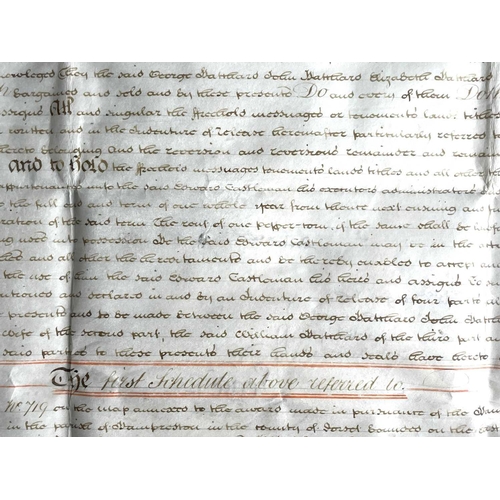 nowleged They the said George Batthard John Batthard Elizabeth Batthard
Bargained and sold and by these presents Do and every of them Doth
assigns All and singular the freehold messuages or tenements lands tithes
written and in the Indenture of Release hereinafter particularly referred
thereto belonging And the reversion and reversions remainder and remain
And to Hold the freehold messuages tenements lands tithes and all other the
appurtenances unto the said Edward Castleman his executors administrators
the full end and term of one whole year from thence next ensuing and
ration of the said term The rent of one pepper-corn if the same shall be
ing uses into possession the said Edward Castleman may be in the
ses and all other the hereditaments and be thereby enabled to accept
the use of him the said Edward Castleman his heirs and assigns To
presents and to be made between the said George Batthard John Batthard
wife of the second part, the said William Batthard of the third part and
said parties to these presents their hands and seals have hereto
The first Schedule above referred to.
No. 719 on the map annexed to the award made in pursuance of the
in the parish of Hampreston in the county of Dorset bounded on the East